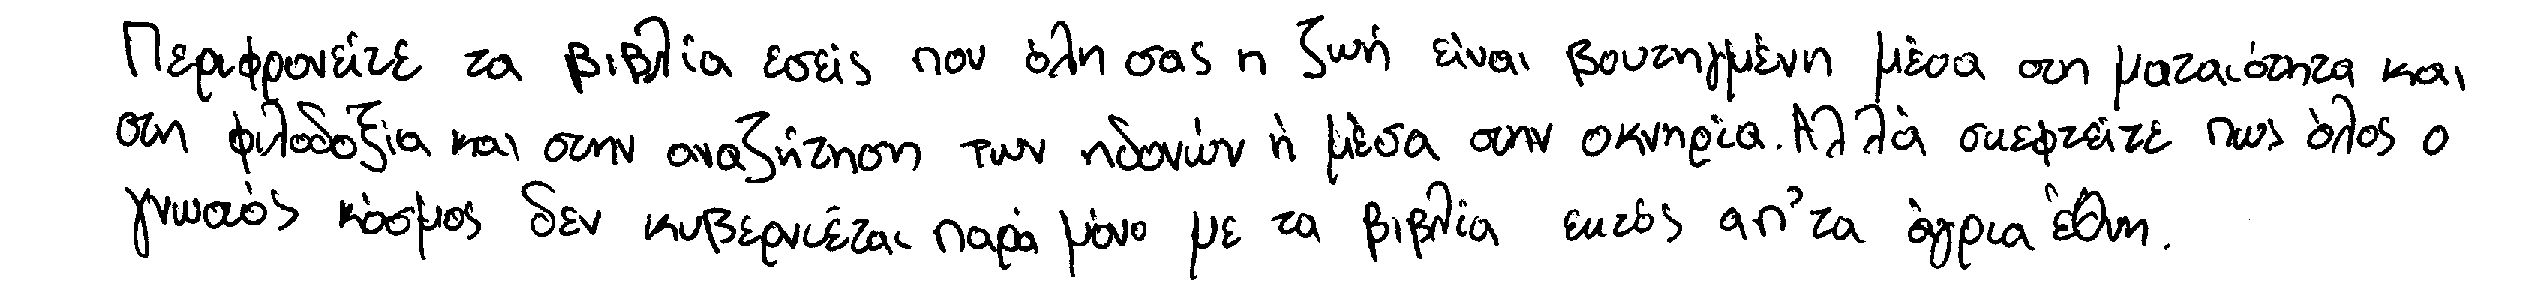 Περιφρονείτε τα βιβλία εσείς που όλη σας η ζωή είναι βουτηγμένη μέσα στη ματαιότητα και
στη φιλοδοξία και στην αναζήτηση των ηδονών ή μέσα στην οκνηρία. Αλλά σκεφτείτε πως όλος ο
γνωστός κόσμος δεν κυβερνιέται παρά μόνο με τα βιβλία εκτός απ' τα άγρια έθνη.